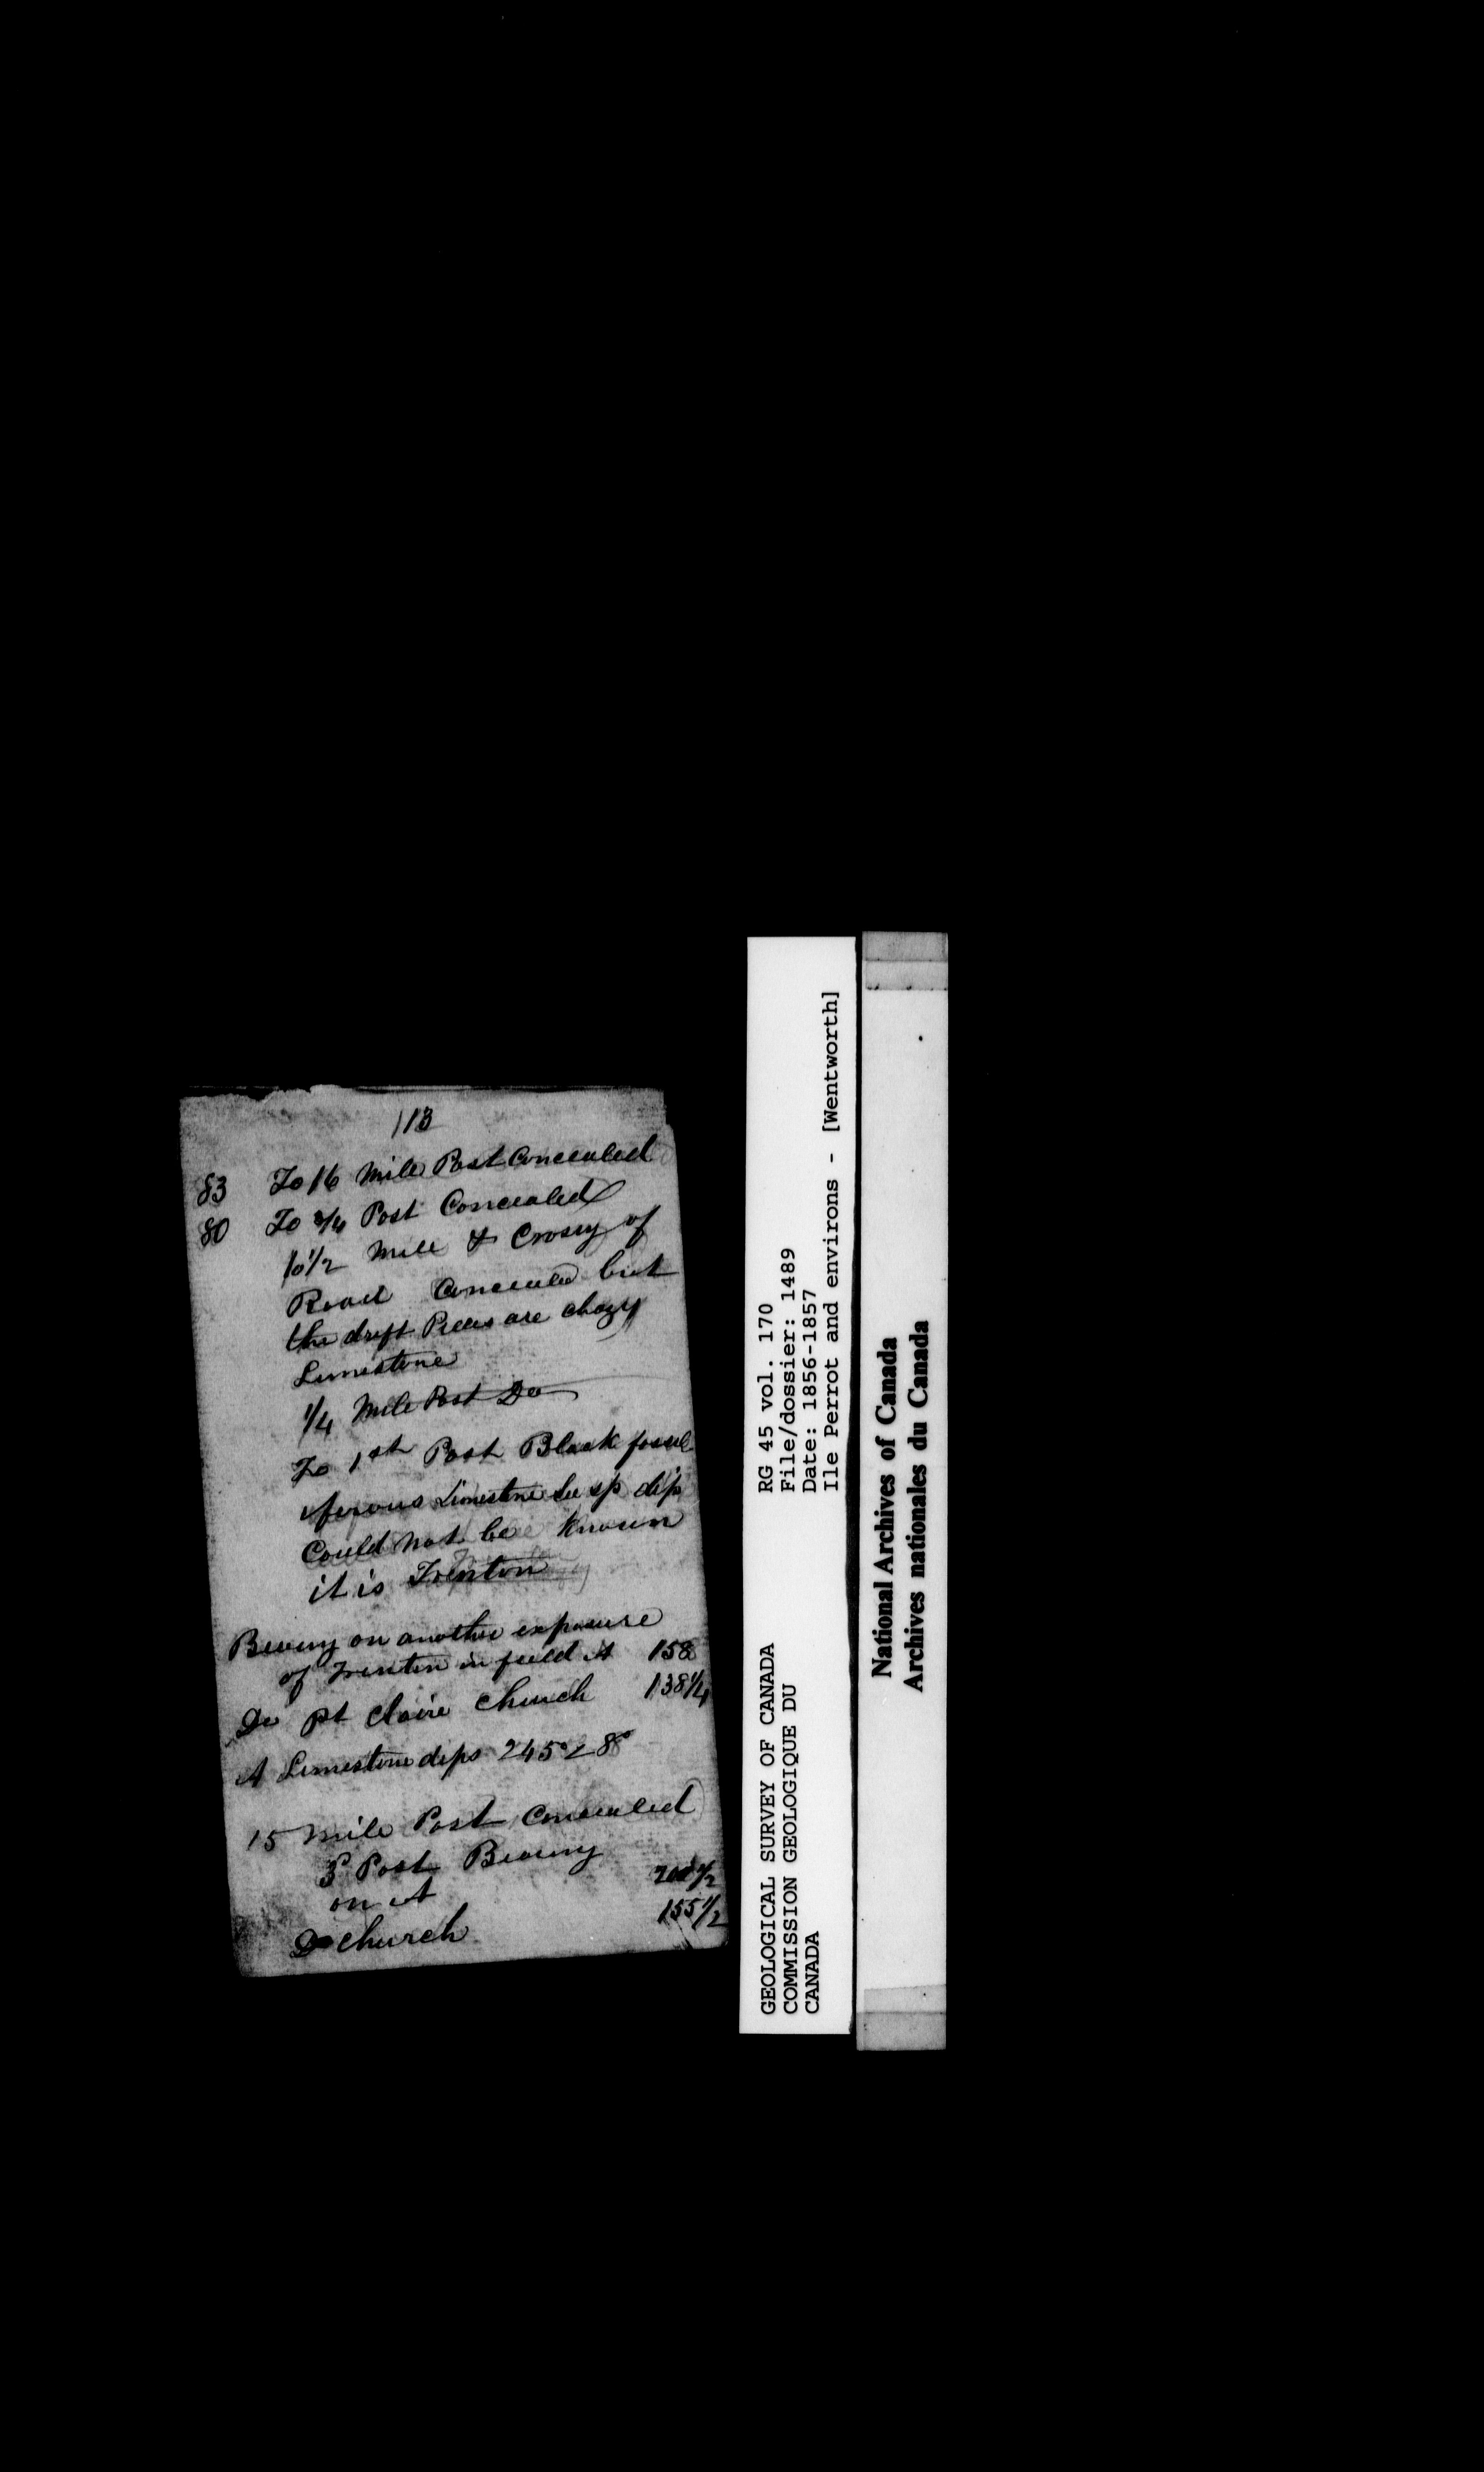 113
83 To 16 Mile Post Concealed
80 To 3/4 Post Concealed
1/2 Mile & Crosing of
Road Concealed but
the drift Pieces are chazy
Limestone
1/4 Mile Post Do
To 1st Post Black fossil
iferous Limestone See sp dip
Could not be known
it is Trenton
Bearing on another exposure
of Trenton in field A 158
Do pt Claire Church 138 1/4
A Limestone dips 245° < 8°
15 Mile Post Concealed
3d Post Bearing
on A 1/2
Do church 155 1/2
GEOLOGICAL SURVEY OF CANADA
COMMISSION GEOLOGIQUE DU
CANADA
RG 45 vol. 170
File/dossier: 1489
Date: 1856-1857
Ile Perrot and environs - [Wentworth]
National Archives of Canada
Archives nationales du Canada